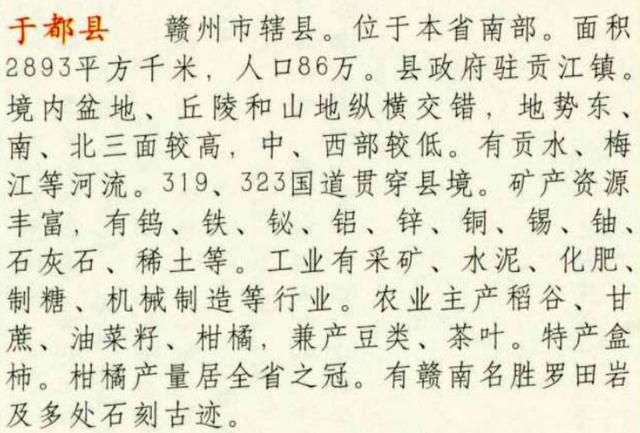 于都县 赣州市辖县。位于本省南部。面积
2893平方千米，人口86万。县政府驻贡江镇。
境内盆地、丘陵和山地纵横交错，地势东、
南、北三面较高，中、西部较低。有贡水、梅
江等河流。319、323国道贯穿县境。矿产资源
丰富，有钨、铁、铋、铝、锌、铜、锡、铀、
石灰石、稀土等。工业有采矿、水泥、化肥、
制糖、机械制造等行业。农业主产稻谷、甘
蔗、油菜籽、柑橘，兼产豆类、茶叶。特产盒
柿。柑橘产量居全省之冠。有赣南名胜罗田岩
及多处石刻古迹。